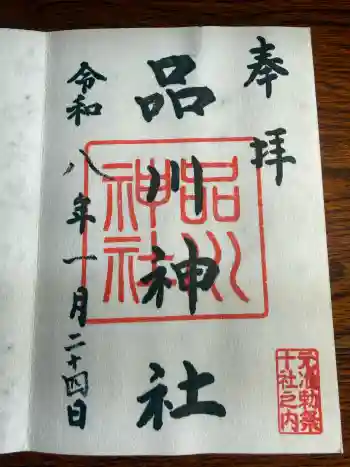 奉拝
品川神社
令和八年一月二十四日
品川
神社
元准勅祭
十社之内